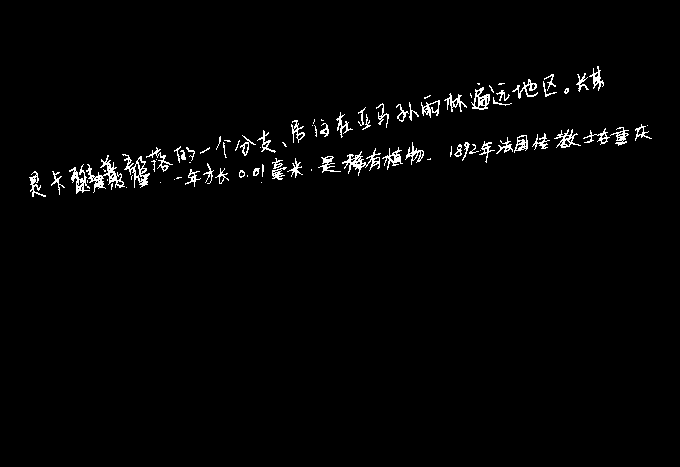 是卡部落的一个分支、居住在亚马孙雨林遍远地区。长其
一年方长0.01毫米.是稀有植物.1892年法国传教士在重庆